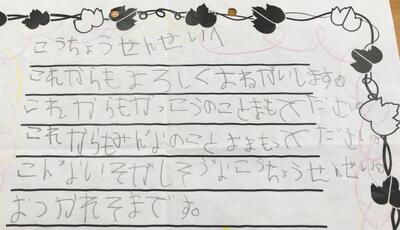 こうちょうせんせいへ
これからもよろしくおねがいします。
これからもがっこうのことまもってださい
これからもみんなのことおまもってださい。
こんないそがしそうなこうちょうせんせいは
おつかれそまです。